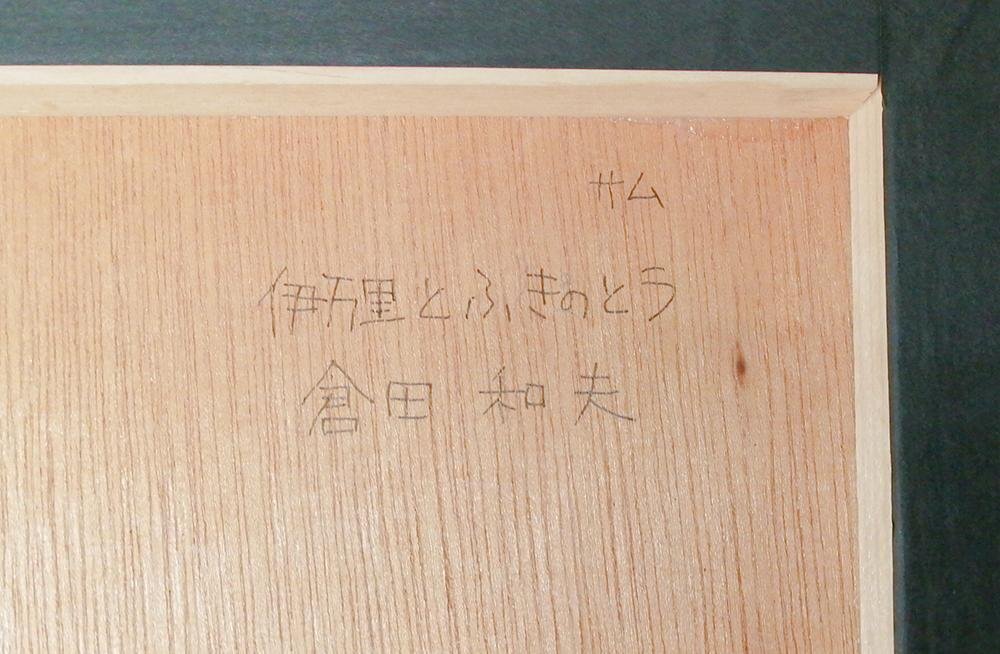 サム
伊万里とふきのとう
倉田 和夫